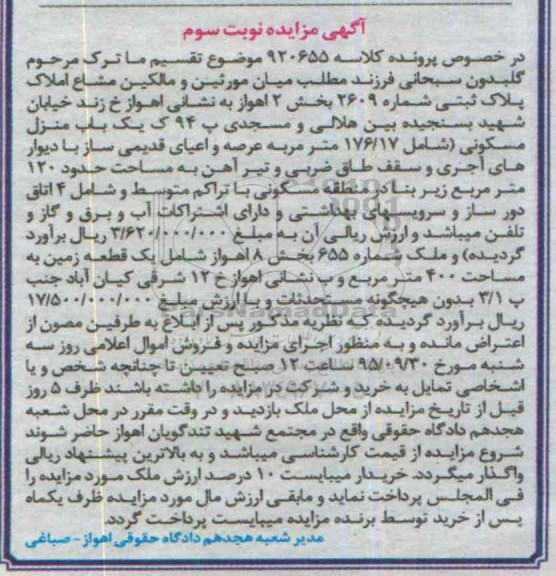 آگهی مزایده نوبت سوم
در خصوص پرونده کلاسه ۹۲۰۶۵۵ موضوع تقسیم ما ترک مرحوم
گلبدون سبحانی فرزند مطلب میان مورثین و مالکین مشاع املاک
پلاک ثبتی شماره ۲۶۰۹ بخش ۲ اهواز به نشانی اهواز خ زند خیابان
شهید بسنجیده بین هلالی و مسجدی پ ۹۴ ک یک باب منزل
مسکونی (شامل ۱۷۶/۱۷ متر مربه عرصه و اعیای قدیمی ساز با دیوار
های آجری و سقف طاق ضربی و تیر آهن به مساحت حدود ۱۲۰
متر مربع زیر بنا در منطقه مسکونی با تراکم متوسط و شامل ۴ اتاق
دور ساز و سرویسهای بهداشتی و دارای اشتراکات آب و برق و گاز و
تلفن میباشد و ارزش ریالی آن به مبلغ ۳/۶۲۰/۰۰۰/۰۰۰ ریال برآورد
گردیده) و ملک شماره ۶۵۵ بخش ۸ اهواز شامل یک قطعه زمین به
مساحت ۴۰۰ متر مربع و ب نشانی اهواز خ ۱۲ شرقی کیان آباد جنب
پ ۳/۱ بدون هیچگونه مستحدثات و با ارزش مبلغ ۱۷/۵۰۰/۰۰۰/۰۰۰
ریال برآورد گردیده که نظریه مذکور پس از ابلاغ به طرفین مصون از
اعتراض مانده و به منظور اجرای مزایده و فروش اموال اعلامی روز سه
شنبه مورخ ۹۵/۰۹/۳۰ ساعت ۱۲ صبح تعیین تا چنانچه شخص و یا
اشخاصی تمایل به خرید و شرکت در مزایده را داشته باشند ظرف ۵ روز
قبل از تاریخ مزایده از محل ملک بازدید و در وقت مقرر در محل شعبه
هجدهم دادگاه حقوقی واقع در مجتمع شهید تندگویان اهواز حاضر شوند
شروع مزایده از قیمت کارشناسی میباشد و به بالاترین پیشنهاد ریالی
واگذار میگردد. خریدار میبایست ۱۰ درصد ارزش ملک مورد مزایده را
فی المجلس پرداخت نماید و مابقی ارزش مال مورد مزایده ظرف یکماه
پس از خرید توسط برنده مزایده میبایست پرداخت گردد.
مدیر شعبه هجدهم دادگاه حقوقی اهواز - صباغی